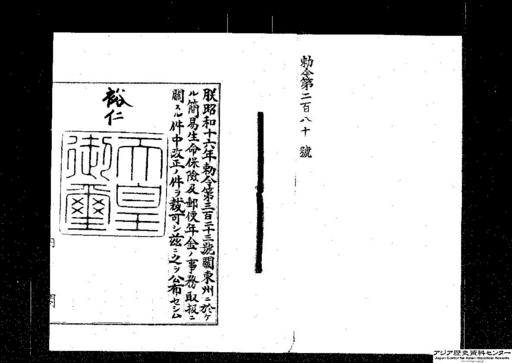 勅令第二百八十號
朕昭和十六年勅令第三百二十三號關東州ニ於ケ
ル簡易生命保險及郵便年金ノ事務取扱ニ
關スル件中改正ノ件ヲ裁可シ茲ニ之ヲ公布セシム
裕仁
天皇
御璽
アジア歴史資料センター
Japan Center for Asian Historical Records